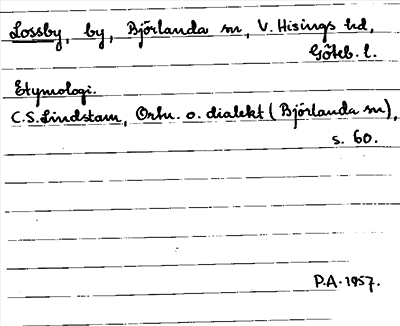 Lossby, by, Björlanda sn, V. Hisings hd,
Göteb. l.
Etymologi.
C.S. Lindstam, Ortn. o. dialekt (Björlanda sn),
s. 60.
P.A. 1957.